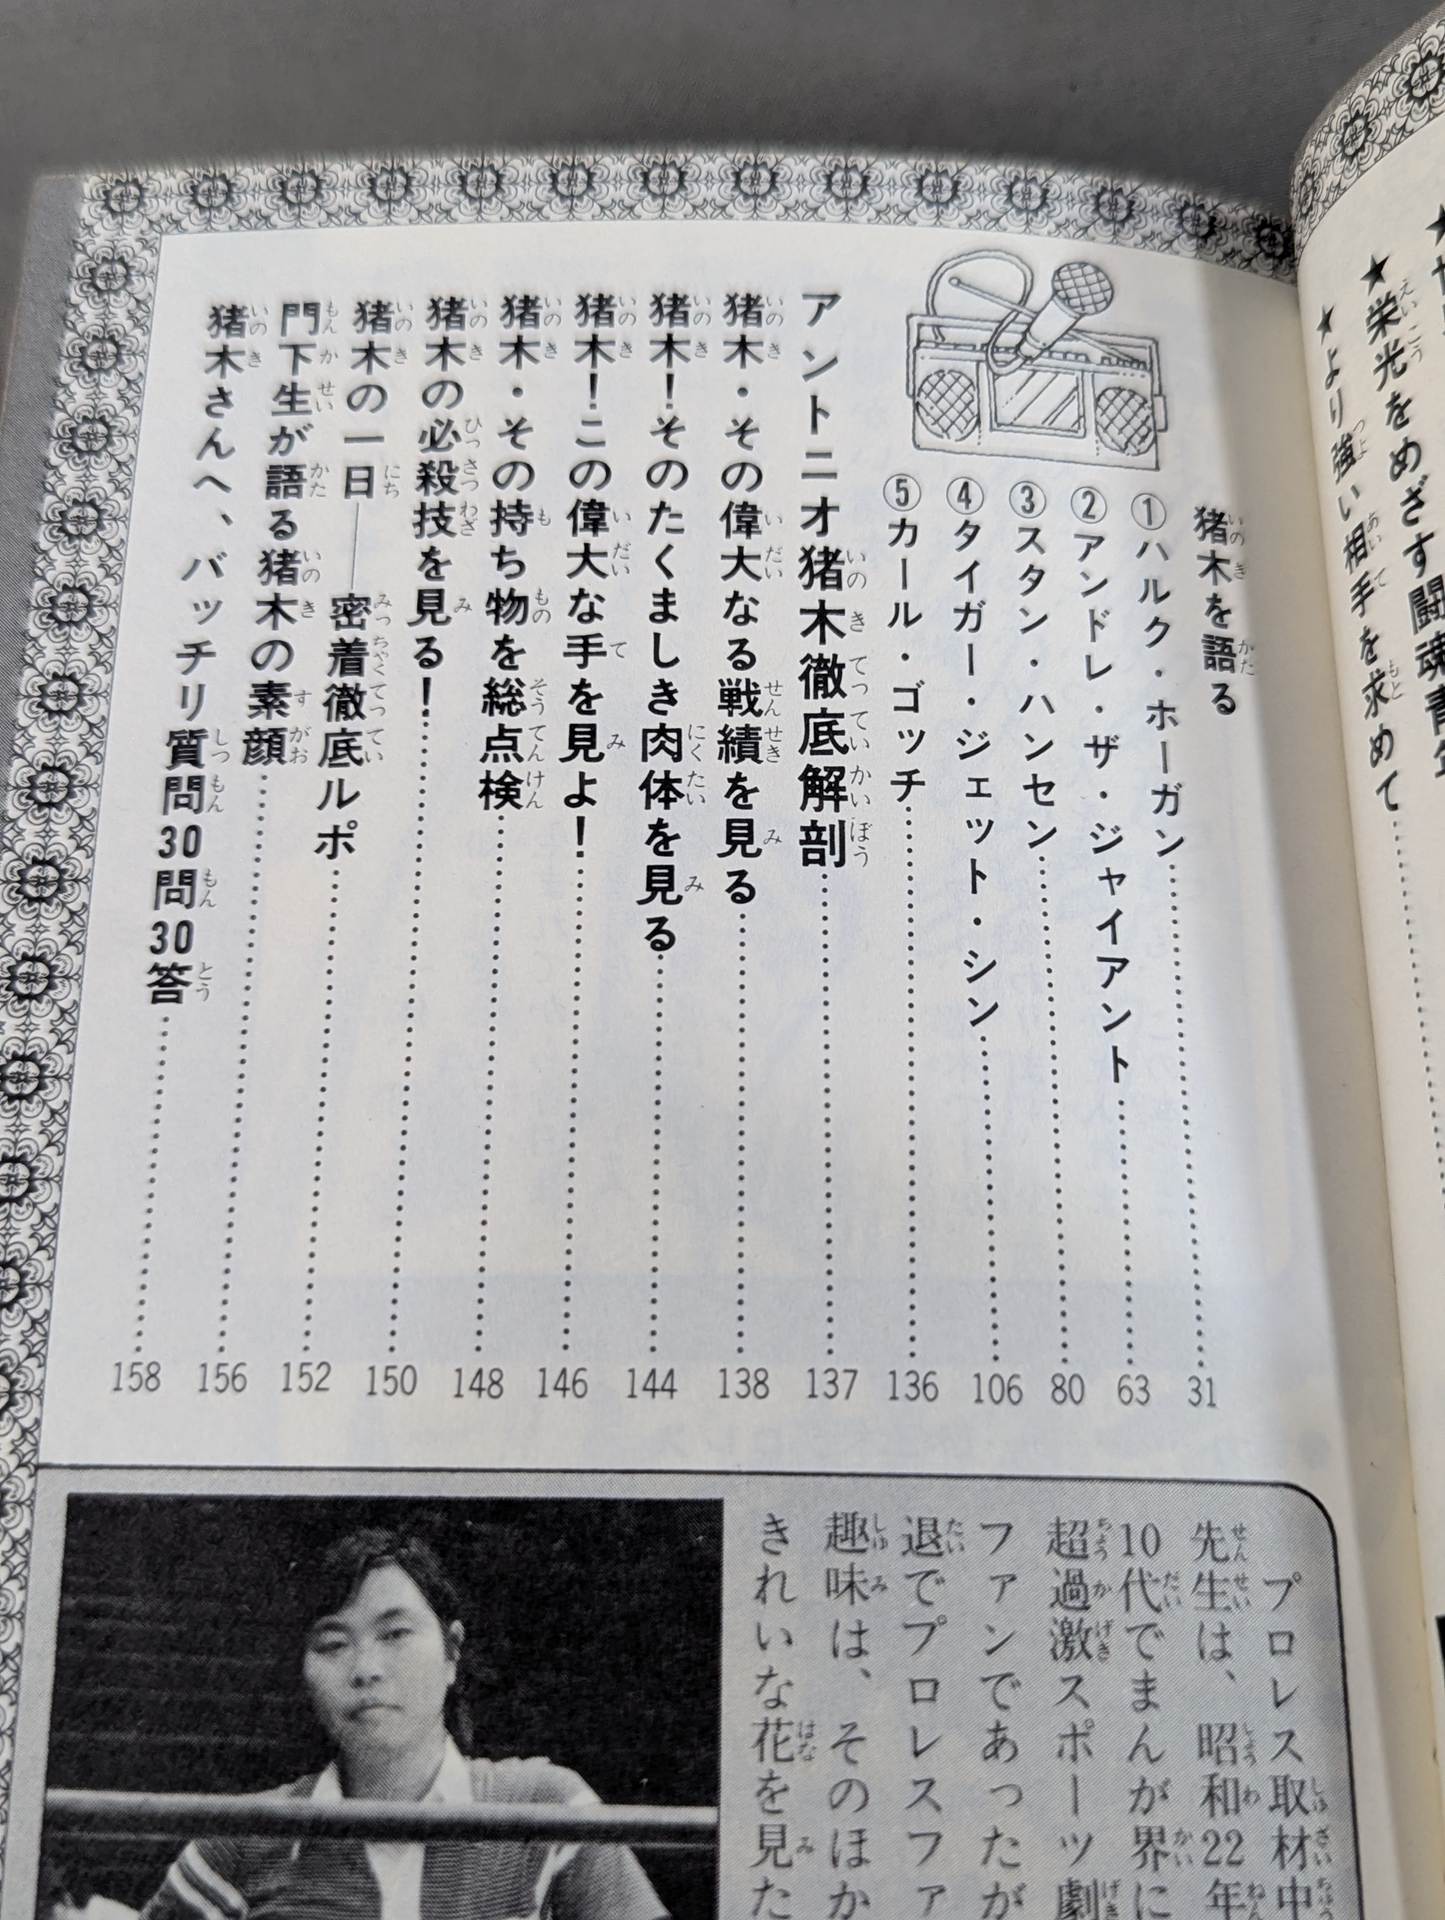 ★栄光をめざす闘魂青年
★より強い相手を求めて
猪木を語る
①ハルク・ホーガン 31
②アンドレ・ザ・ジャイアント 63
③スタン・ハンセン 80
④タイガー・ジェット・シン 106
⑤カール・ゴッチ 136
アントニオ猪木徹底解剖 137
猪木・その偉大なる戦績を見る 138
猪木!そのたくましき肉体を見る 144
猪木!この偉大な手を見よ! 146
猪木・その持ち物を総点検 148
猪木の必殺技を見る! 150
猪木の一日――密着徹底ルポ 152
門下生が語る猪木の素顔 156
猪木さんへ、バッチリ質問30問30答 158
プロレス取材中
先生は、昭和22年
10代でまんが界に
超過激スポーツ劇
ファンであったが
退でプロレスファ
趣味は、そのほか
きれいな花を見た